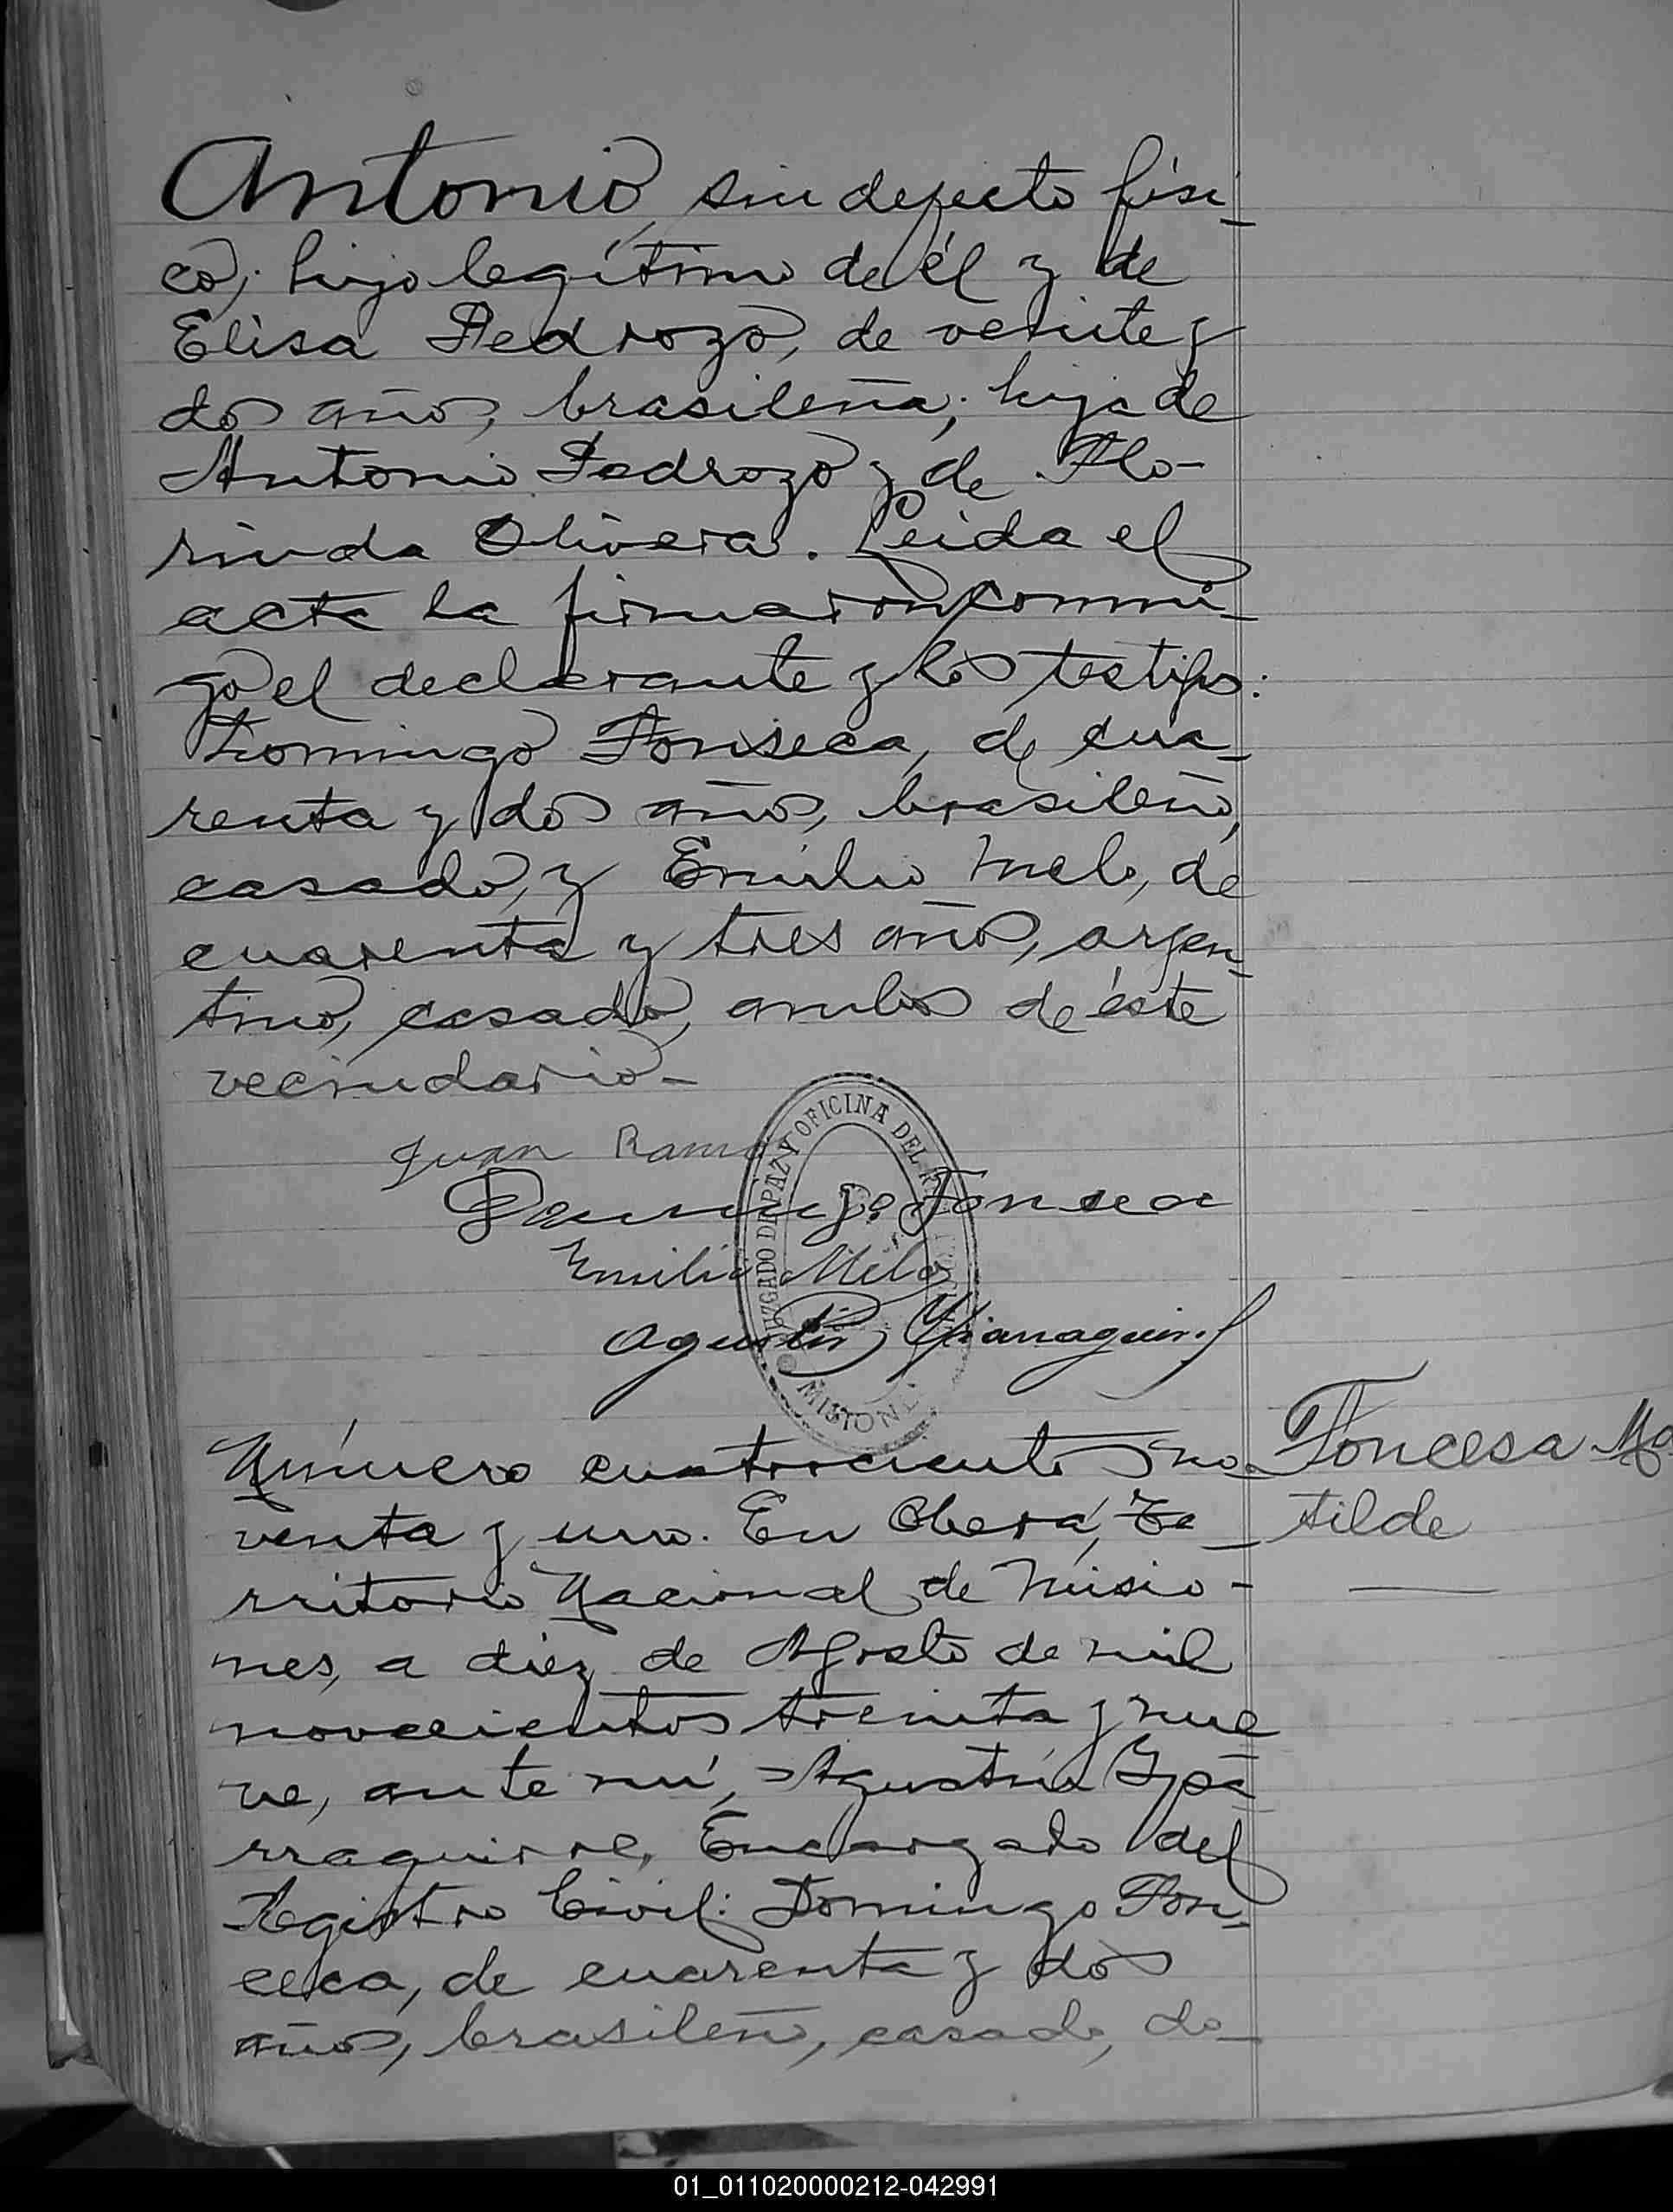 Antonio, sin defecto físi-
co; hijo legítimo de él y de
Elisa Pedrozo, de veinte y
dos años, brasileña; hija de
Antonio Pedrozo y de Flo-
rinda Olivera. Leida el
acta la firmaron conmi-
go el declarante y los testigos:
Domingo Fonseca, de cua-
renta y dos años, brasileño,
casado, y Emilio Melo, de
cuarenta y tres años, argen-
tino, casado, ambos de éste
vecindario-
Juan Ramo
Domingo Fonseca
Emilio Melo
Agustin Yparraguirre
JUZGADO DE PAZ Y OFICINA DEL
MISIONES
Número cuatrocientos no-
venta y uno. En Oberá, Te-
rritorio Nacional de Misio-
nes, a diez de Agosto de mil
novecientos treinta y nue
ve, ante mí, Agustín Ypa
rraguirre, Encargado del
Registro Civil: Domingo Fon-
ceca, de cuarenta y dos
años, brasileño, casado, do-
Foncesa Ma
tilde
01_011020000212-042991